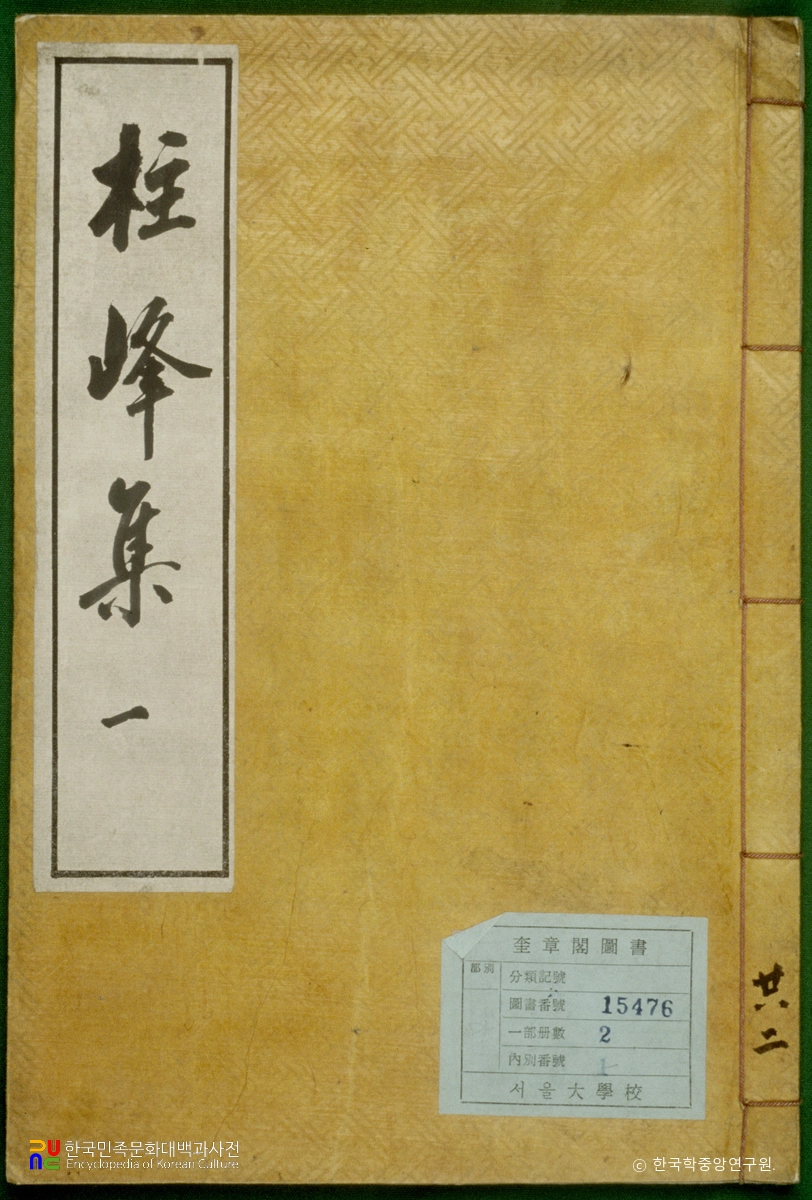 柱峰集 一
奎章閣圖書
部別
分類記號
圖書番號 15476
一部册數 2
內別番號 1
서울大學校
共二
한국민족문화대백과사전
Encyclopedia of Korean Culture
© 한국학중앙연구원.